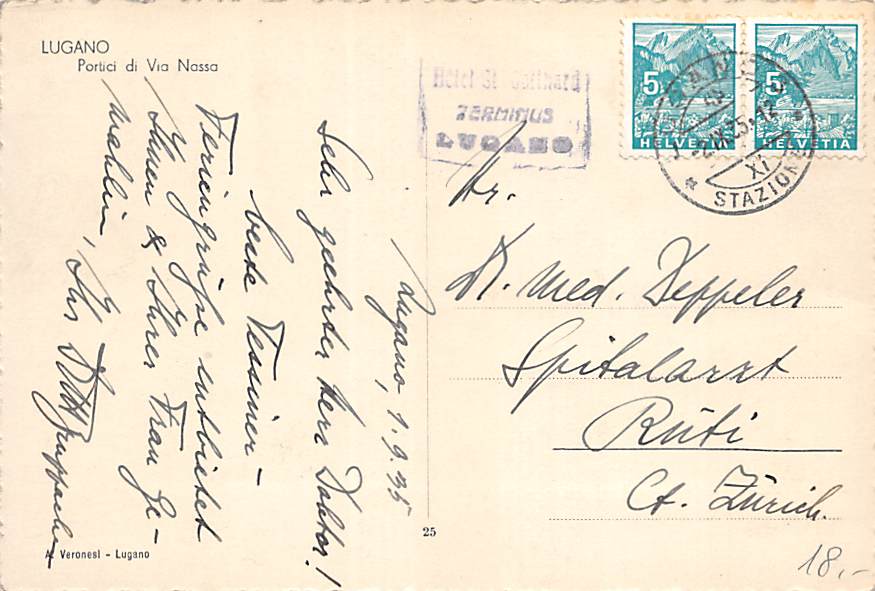 LUGANO
Portici di Via Nassa
Hotel St. Gotthard
TERMINUS
LUGANO
5 5
HELVETIA HELVETIA
LUGANO
2.IX.35.12
XI
STAZIONE
Lugano, 1.9.35
Sehr geehrter Herr Doktor!
beste Tessiner-
Feriengrüsse entbietet
Ihnen & Ihrer Frau Ge-
mahlin, Ihr
Hr.
Dr. med. Keppeler
Spitalarzt
Rüti
Ct. Zürich.
25
A. Veronesi - Lugano
18.-